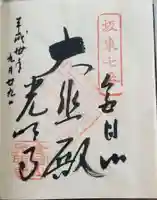 坂東七番
金目山
大悲殿
光明寺
平成卅年
九月廿九日